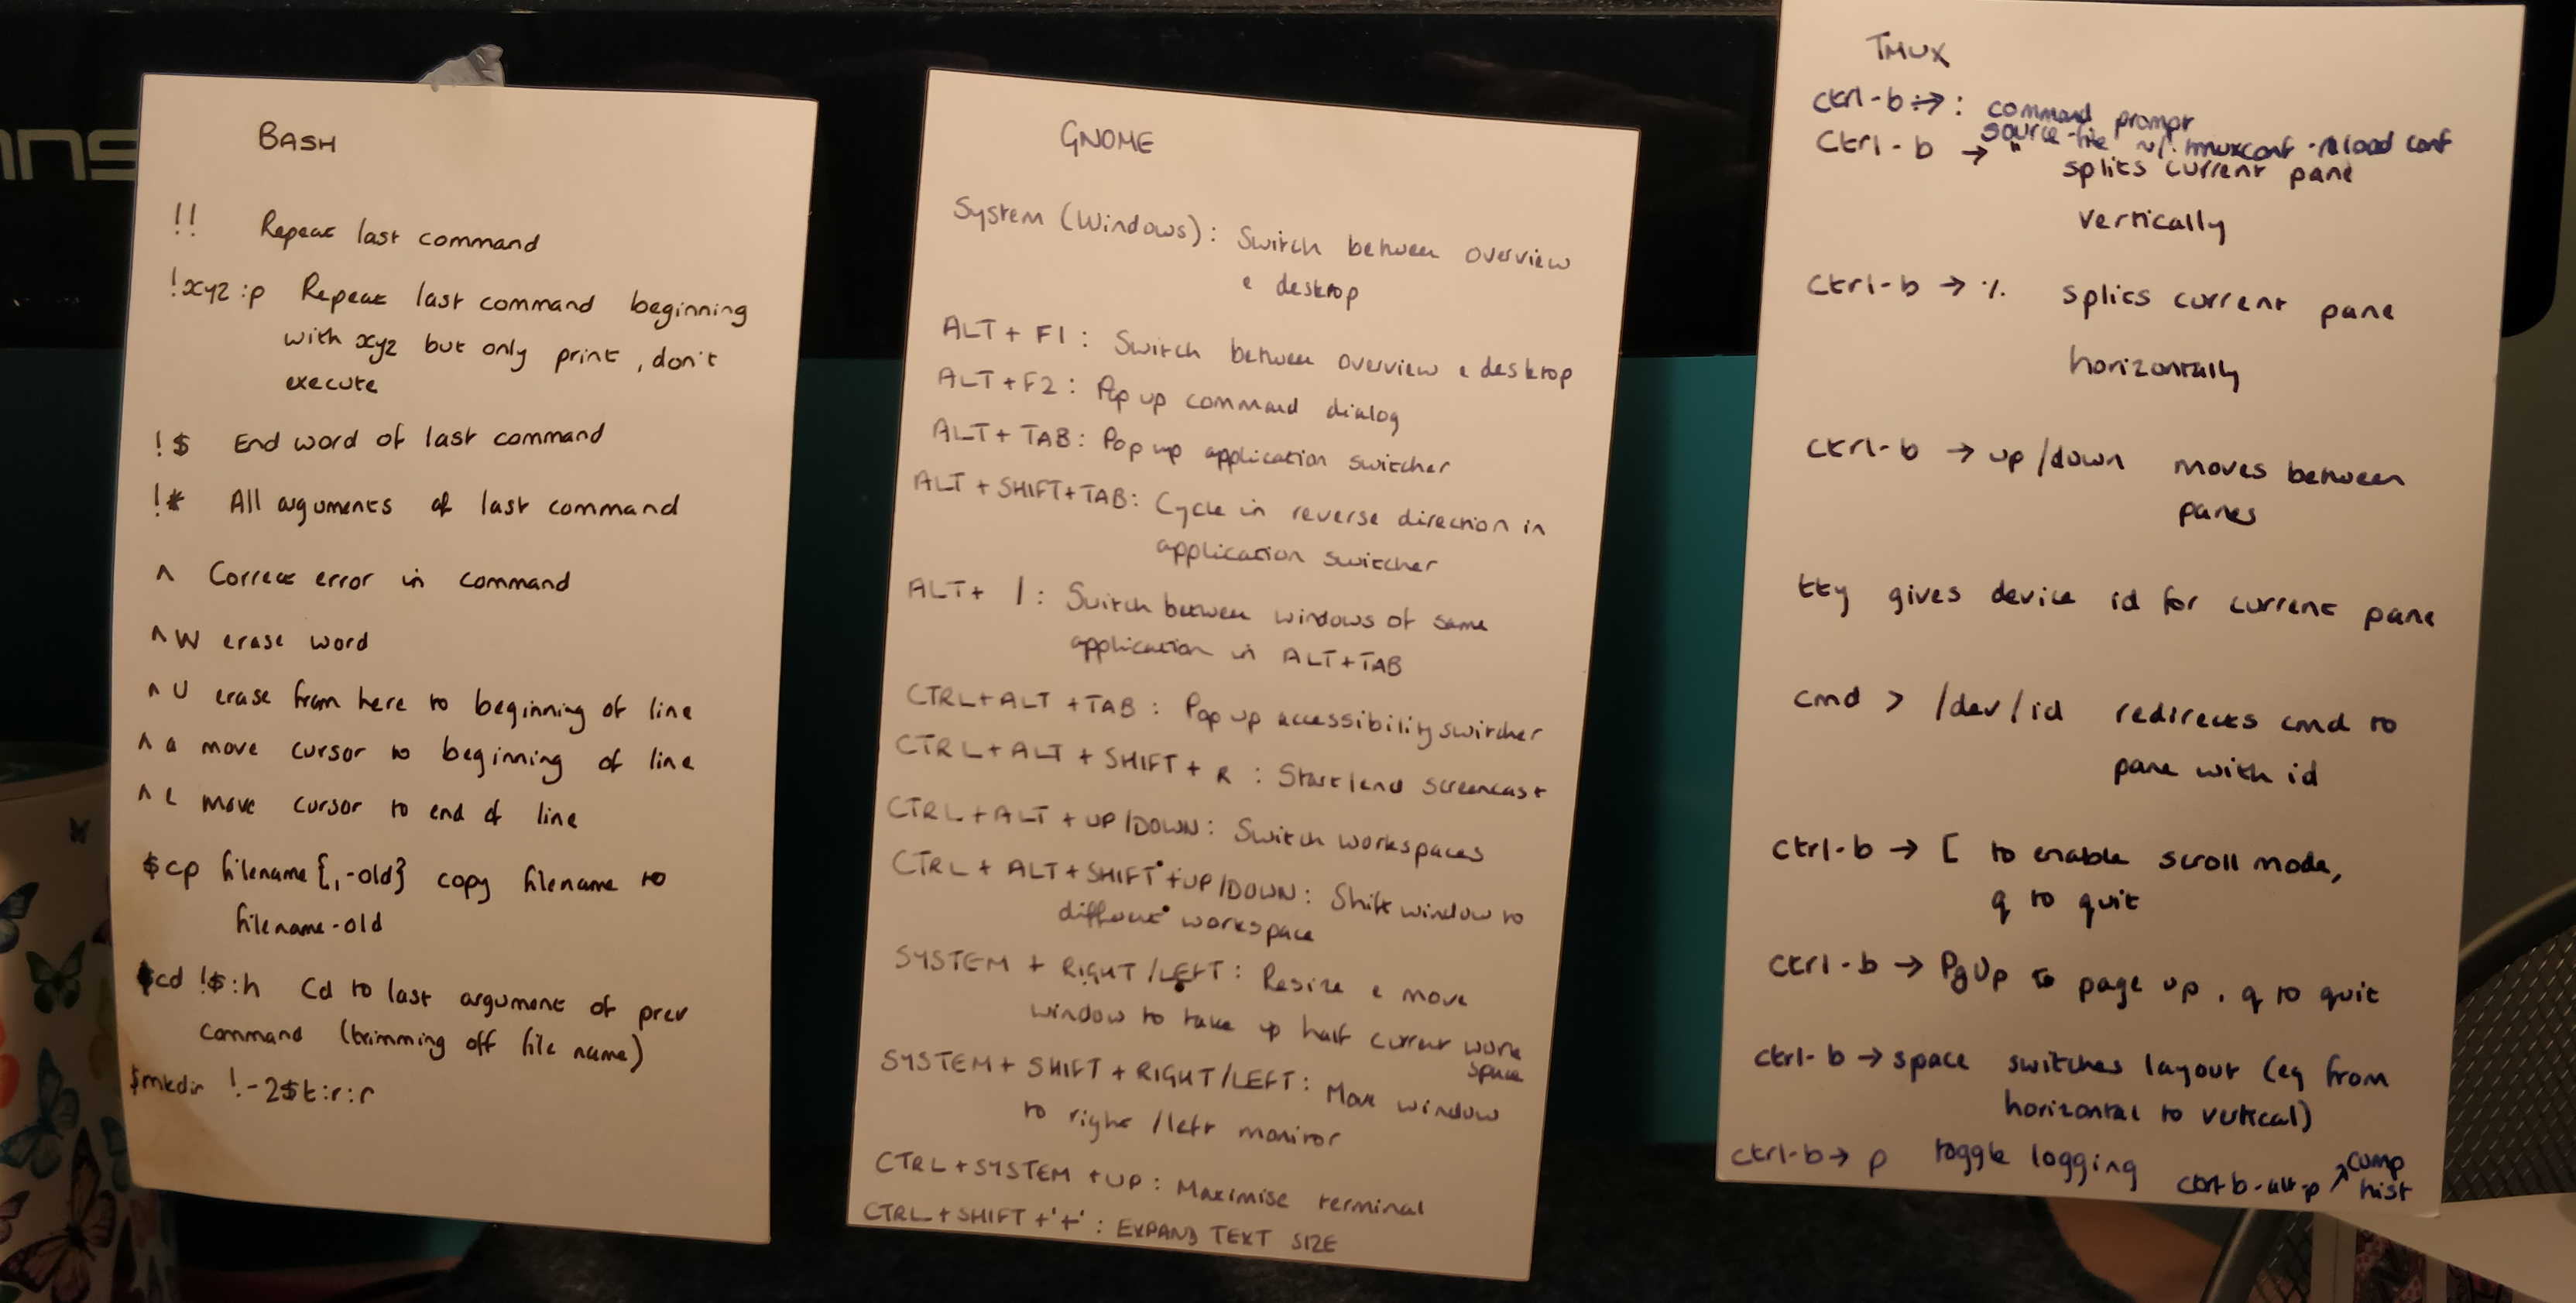 BASH
!! Repeat last command
!xyz :p Repeat last command beginning
with xyz but only print, don't
execute
!$ End word of last command
!* All arguments of last command
^ Correct error in command
^W erase word
^U erase from here to beginning of line
^a move cursor to beginning of line
^e move cursor to end of line
$cp filename{,-old} copy filename to
filename-old
$cd !$:h Cd to last argument of prev
command (trimming off file name)
$mkdir !-2$t:r:r
GNOME
System (Windows): Switch between overview
& desktop
ALT + F1: Switch between overview & desktop
ALT + F2: Pop up command dialog
ALT + TAB: Pop up application switcher
ALT + SHIFT + TAB: Cycle in reverse direction in
application switcher
ALT + |: Switch between windows of same
application in ALT+TAB
CTRL + ALT + TAB: Pop up accessibility switcher
CTRL + ALT + SHIFT + R: Start/end screencast
CTRL + ALT + UP/DOWN: Switch workspaces
CTRL + ALT + SHIFT + UP/DOWN: Shift window to
different workspace
SYSTEM + RIGHT/LEFT: Resize & move
window to take up half current work
space
SYSTEM + SHIFT + RIGHT/LEFT: Move window
to right/left monitor
CTRL + SYSTEM + UP: Maximise terminal
CTRL + SHIFT + '+': EXPAND TEXT SIZE
TMUX
ctrl-b → : command prompt
source-file ~/.tmuxconf - reload conf
Ctrl-b → " splits current pane
vertically
ctrl-b → % splits current pane
horizontally
ctrl-b → up/down moves between
panes
tty gives device id for current pane
cmd > /dev/id redirects cmd to
pane with id
ctrl-b → [ to enable scroll mode,
q to quit
ctrl-b → PgUp to page up, q to quit
ctrl-b → space switches layout (eg from
horizontal to vertical)
ctrl-b → p toggle logging ctrl-b-alt-p ↗ comp
hist